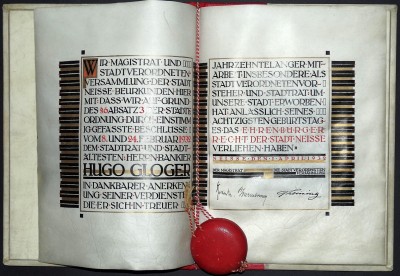 WIR MAGISTRAT UND
STADTVERORDNETEN
VERSAMMLUNG DER STADT
NEISSE BEURKUNDEN HIER
MIT DASS WIR AUF GRUND
DES §6 ABSATZ 3 DER STÄDTE
ORDNUNG DURCH EINSTIMM
IG GEFASSTE BESCHLÜSSE
VOM 18. UND 24. FEBRUAR 1932
DEM STADTRAT UND STADT
ÄLTESTEN: HERRN BANKIER
HUGO GLOGER
IN DANKBARER ANERKEN
UNG SEINER VERDIENSTE
DIE ER SICH IN TREUER
JAHRZEHNTELANGER MIT-
ARBEIT INSBESONDERE ALS
STADTVERORDNETENVOR-
STEHER UND STADTRAT UM
UNSERE STADT ERWORBEN
HAT ANLÄSSLICH SEINES
ACHTZIGSTEN GEBURTSTAG
ES DAS EHRENBÜRGER
RECHT DER STADT NEISSE
VERLIEHEN HABEN
DER MAGISTRAT